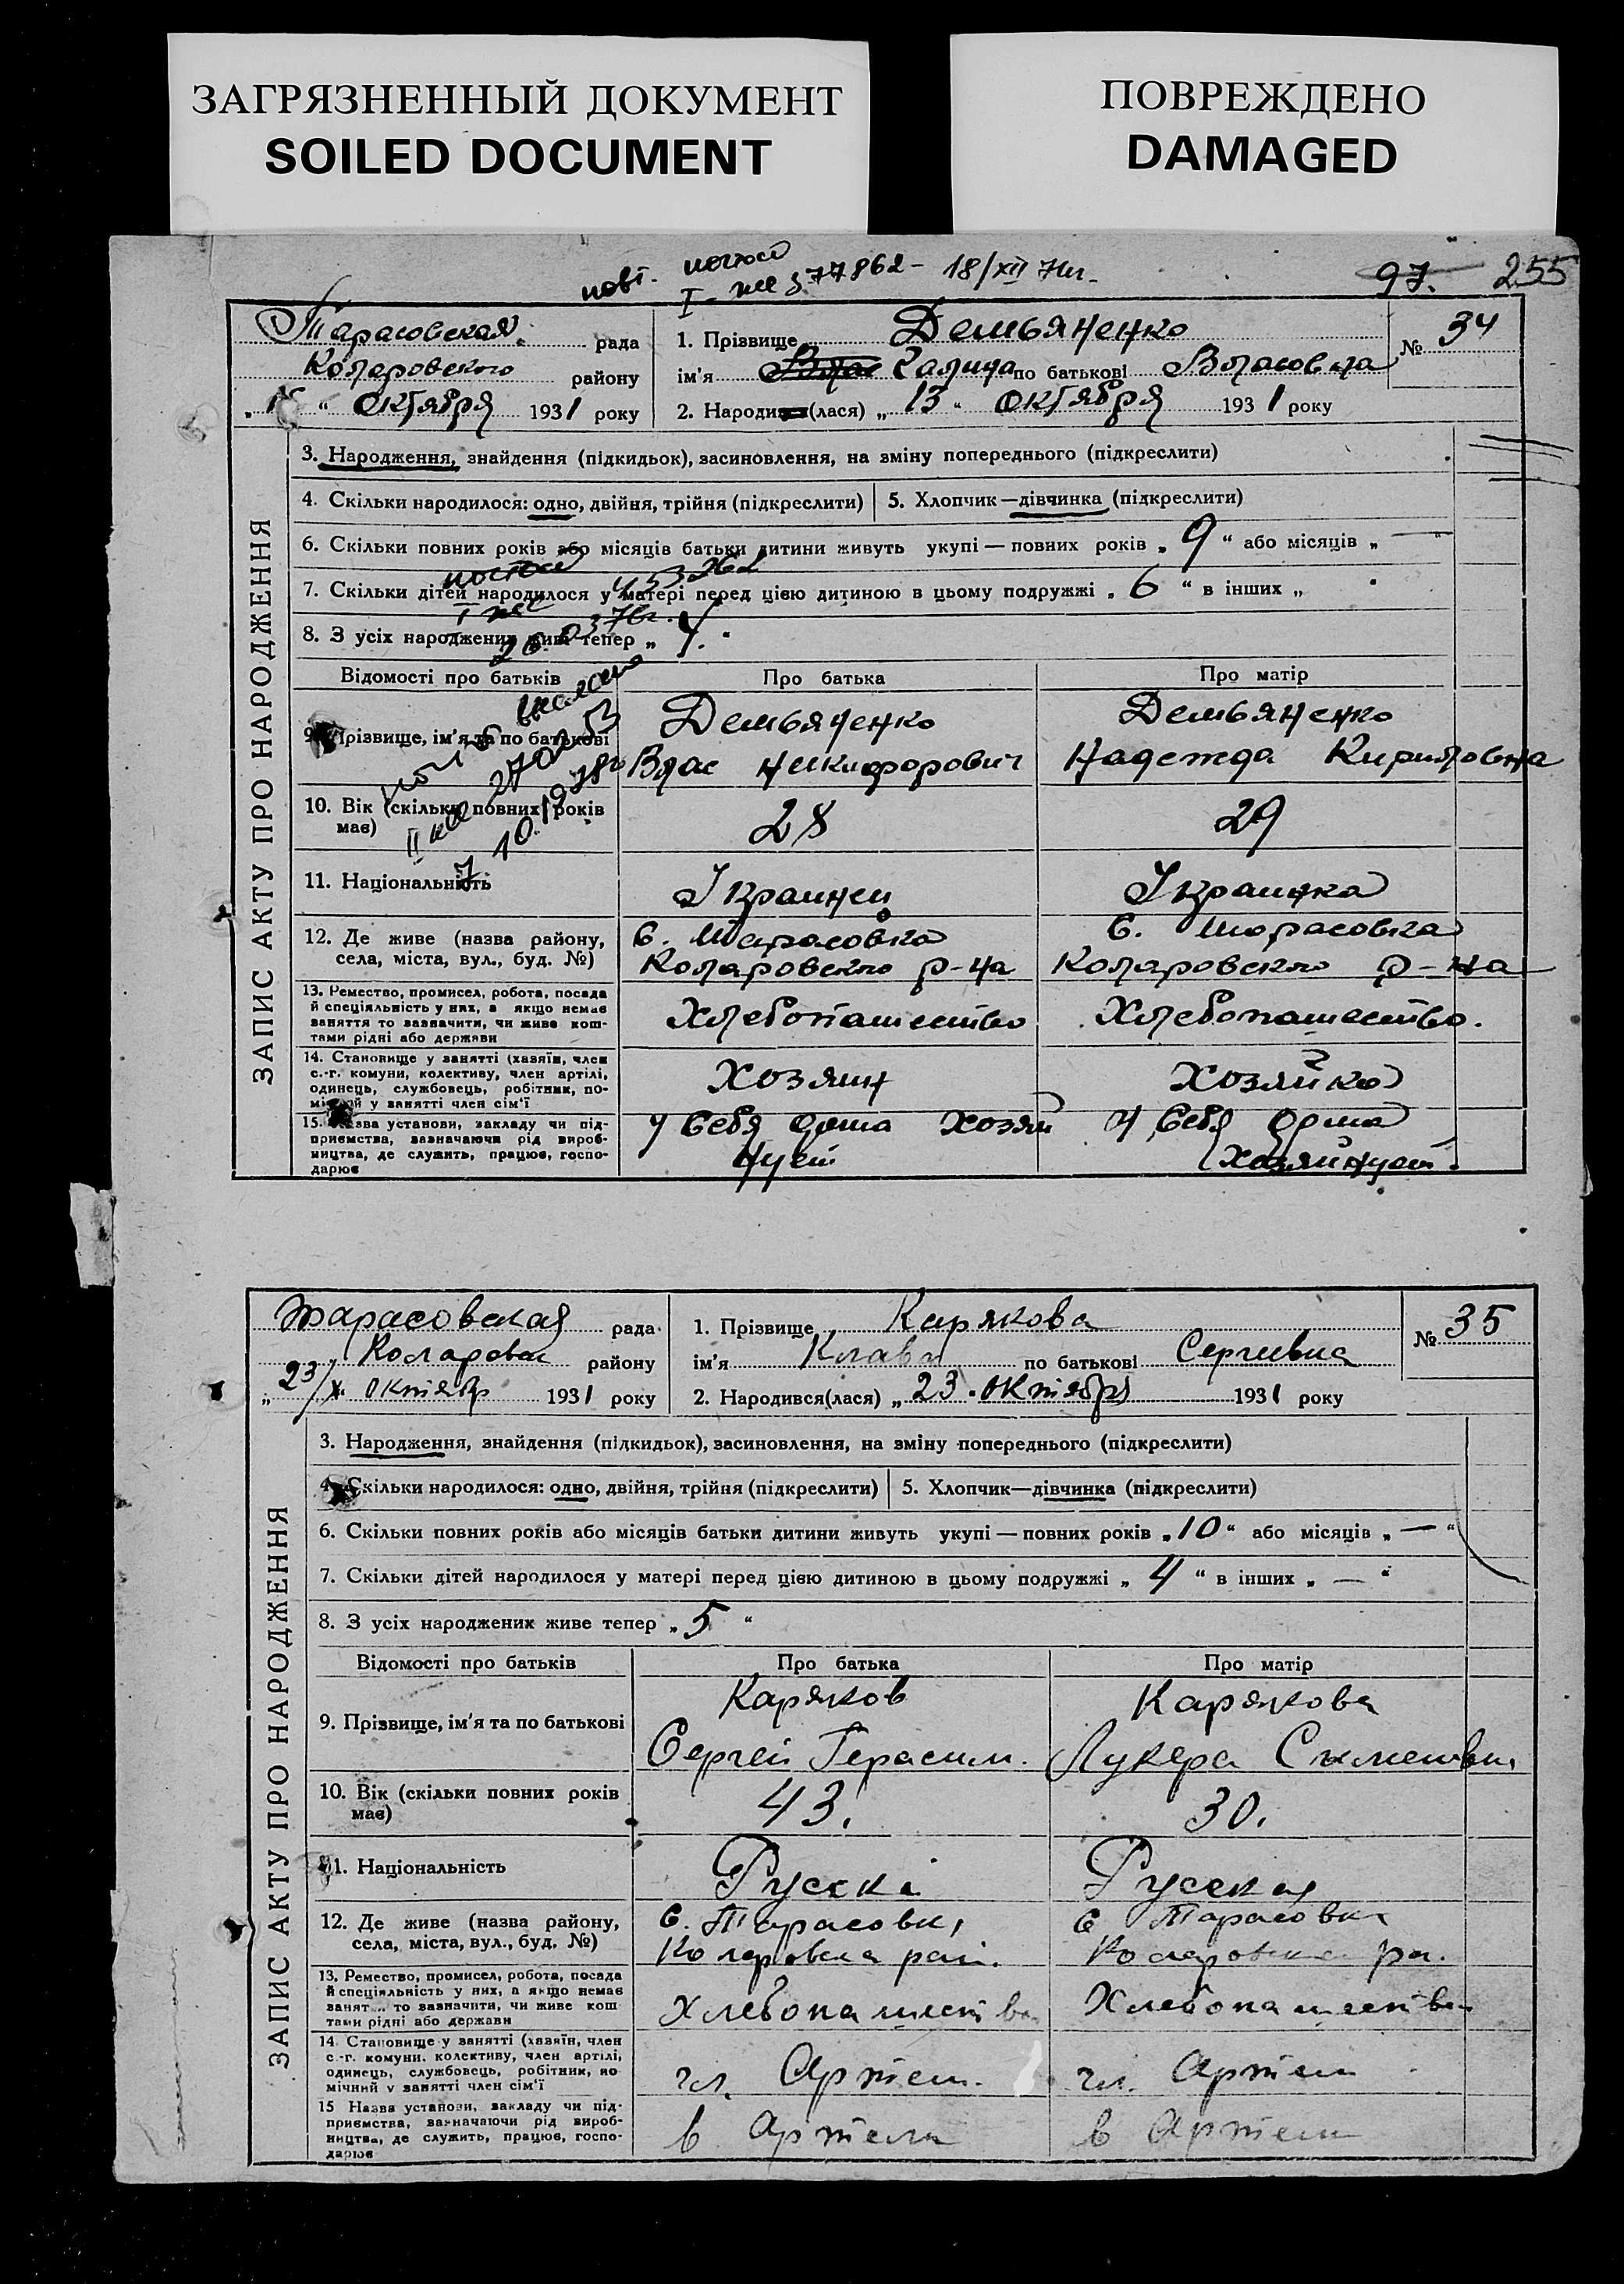 ЗАГРЯЗНЕННЫЙ ДОКУМЕНТ
SOILED DOCUMENT
ПОВРЕЖДЕНО
DAMAGED
повт.
I - 377862 - 18/XII 71г.
97. 255
Тарасовская рада
Коларовского району
" октября 1931 року
1. Прізвище Демьяненко
ім'я Влас Галина по батькові Власовна
2. Народи (лася) „13" октября 1931 року
№ 34
ЗАПИС АКТУ ПРО НАРОДЖЕННЯ
3. Народження, знайдення (підкидьок), засиновлення, на зміну попереднього (підкреслити)
4. Скільки народилося: одно, двійня, трійня (підкреслити)
5. Хлопчик—дівчинка (підкреслити)
6. Скільки повних років або місяців батьки дитини живуть укупі — повних років „ 9 " або місяців „ — "
7. Скільки дітей народилося у матері перед цією дитиною в цьому подружжі „ 6 " в інших „
8. З усіх народжених живі тепер „ 4.
Відомості про батьків
Про батька
Про матір
9. Прізвище, ім'я та по батькові
Демьяненко
Влас Никифорович
Демьяненко
Надежда Кириловна
10. Вік (скільки повних років
має)
28
29
10. 1978г
11. Національність
Украинец
Украинка
12. Де живе (назва району,
села, міста, вул., буд. №)
с. Тарасовка
Коларовского р-на
с. Тарасовка
Коларовского р-на
13. Ремество, промисел, робота, посада
й спеціяльність у них, а якщо немає
заняття то зазначити, чи живе кош-
тами рідні або держави
Хлебопашество
Хлебопашество.
14. Становище у занятті (хазяїн, член
с.-г. комуни, колективу, член артілі,
одинець, службовець, робітник, по-
мічний у занятті член сім'ї
Хозяин
Хозяйка
15. Назва установи, закладу чи під-
приємства, зазначаючи рід вироб-
ництва, де служить, працює, госпо-
дарює
У себя дома хозяй
нует
У себя дома
хозяйнует.
Тарасовская рада
Коларовск району
„23/X. октябр 1931 року
1. Прізвище Карякова
ім'я Клава по батькові Сергеевна
2. Народився(лася) „23. октября 1931 року
№ 35
ЗАПИС АКТУ ПРО НАРОДЖЕННЯ
3. Народження, знайдення (підкидьок), засиновлення, на зміну попереднього (підкреслити)
4. Скільки народилося: одно, двійня, трійня (підкреслити)
5. Хлопчик—дівчинка (підкреслити)
6. Скільки повних років або місяців батьки дитини живуть укупі — повних років „10" або місяців „ — "
7. Скільки дітей народилося у матері перед цією дитиною в цьому подружжі „ 4 " в інших „ — "
8. З усіх народжених живе тепер „ 5 "
Відомості про батьків
Про батька
Про матір
9. Прізвище, ім'я та по батькові
Каряков
Сергей Герасим.
Карякова
Лукера
10. Вік (скільки повних років
має)
43.
30.
11. Національність
Русскі
Русская
12. Де живе (назва району,
села, міста, вул., буд. №)
с. Тарасовка
Коларовска рай.
с Тарасовка
Коларовска ра.
13. Ремество, промисел, робота, посада
й спеціяльність у них, а якщо немає
занят... то зазначити, чи живе кош
тами рідні або держави
Хлебопашество
Хлебопашество
14. Становище у занятті (хазяїн, член
с.-г. комуни, колективу, член артілі,
одинець, службовець, робітник, по
мічний у занятті член сім'ї
чл. Артели.
чл. Артели
15 Назва установи, закладу чи під-
приємства, зазначаючи рід вироб-
ництва, де служить, працює, госпо-
дарює
в Артели
в Артели